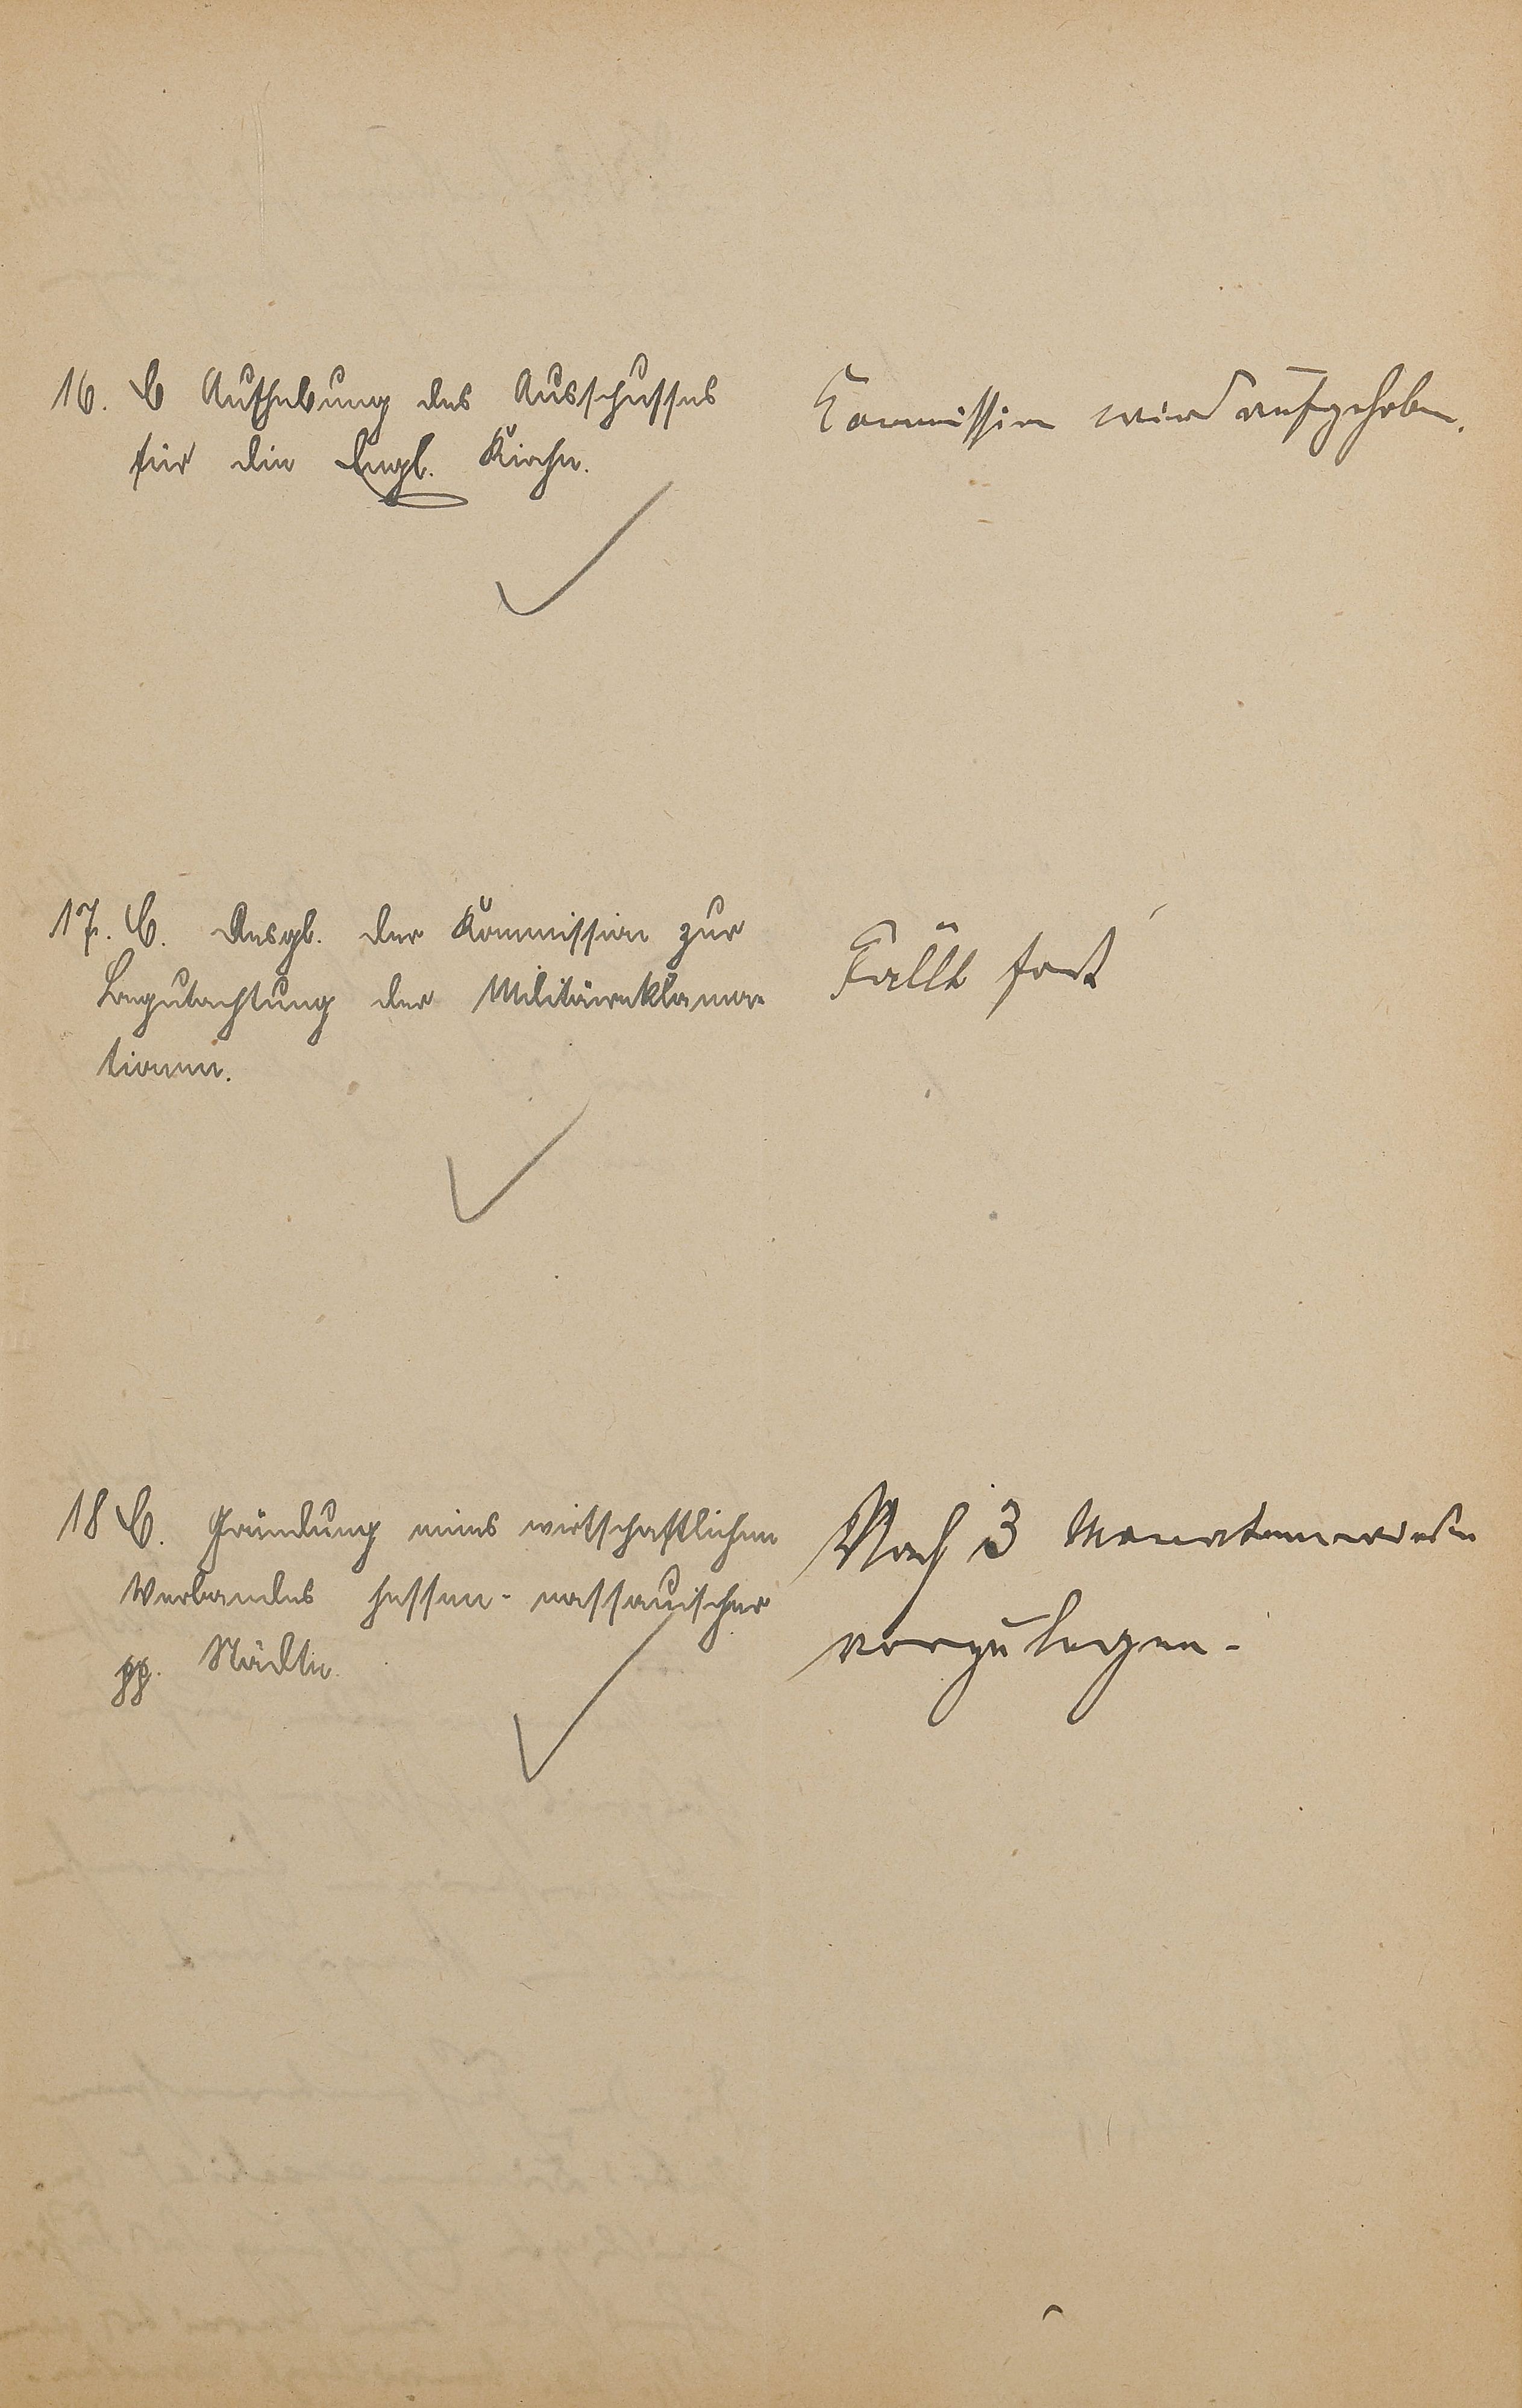 16. C Aufhebung des Ausschusses
für die Engl. Kirche.
Kommission wird aufgehoben.
17. C. Desgl. der Kommission zur
Begutachtung der Militärreklama-
tionen.
Fällt fort
18 C. Gründung eines wirtschaftlichen
Verbandes hessen-nassauischer
pp. Städte.
Nach 3 Monaten wieder
vorzulegen.